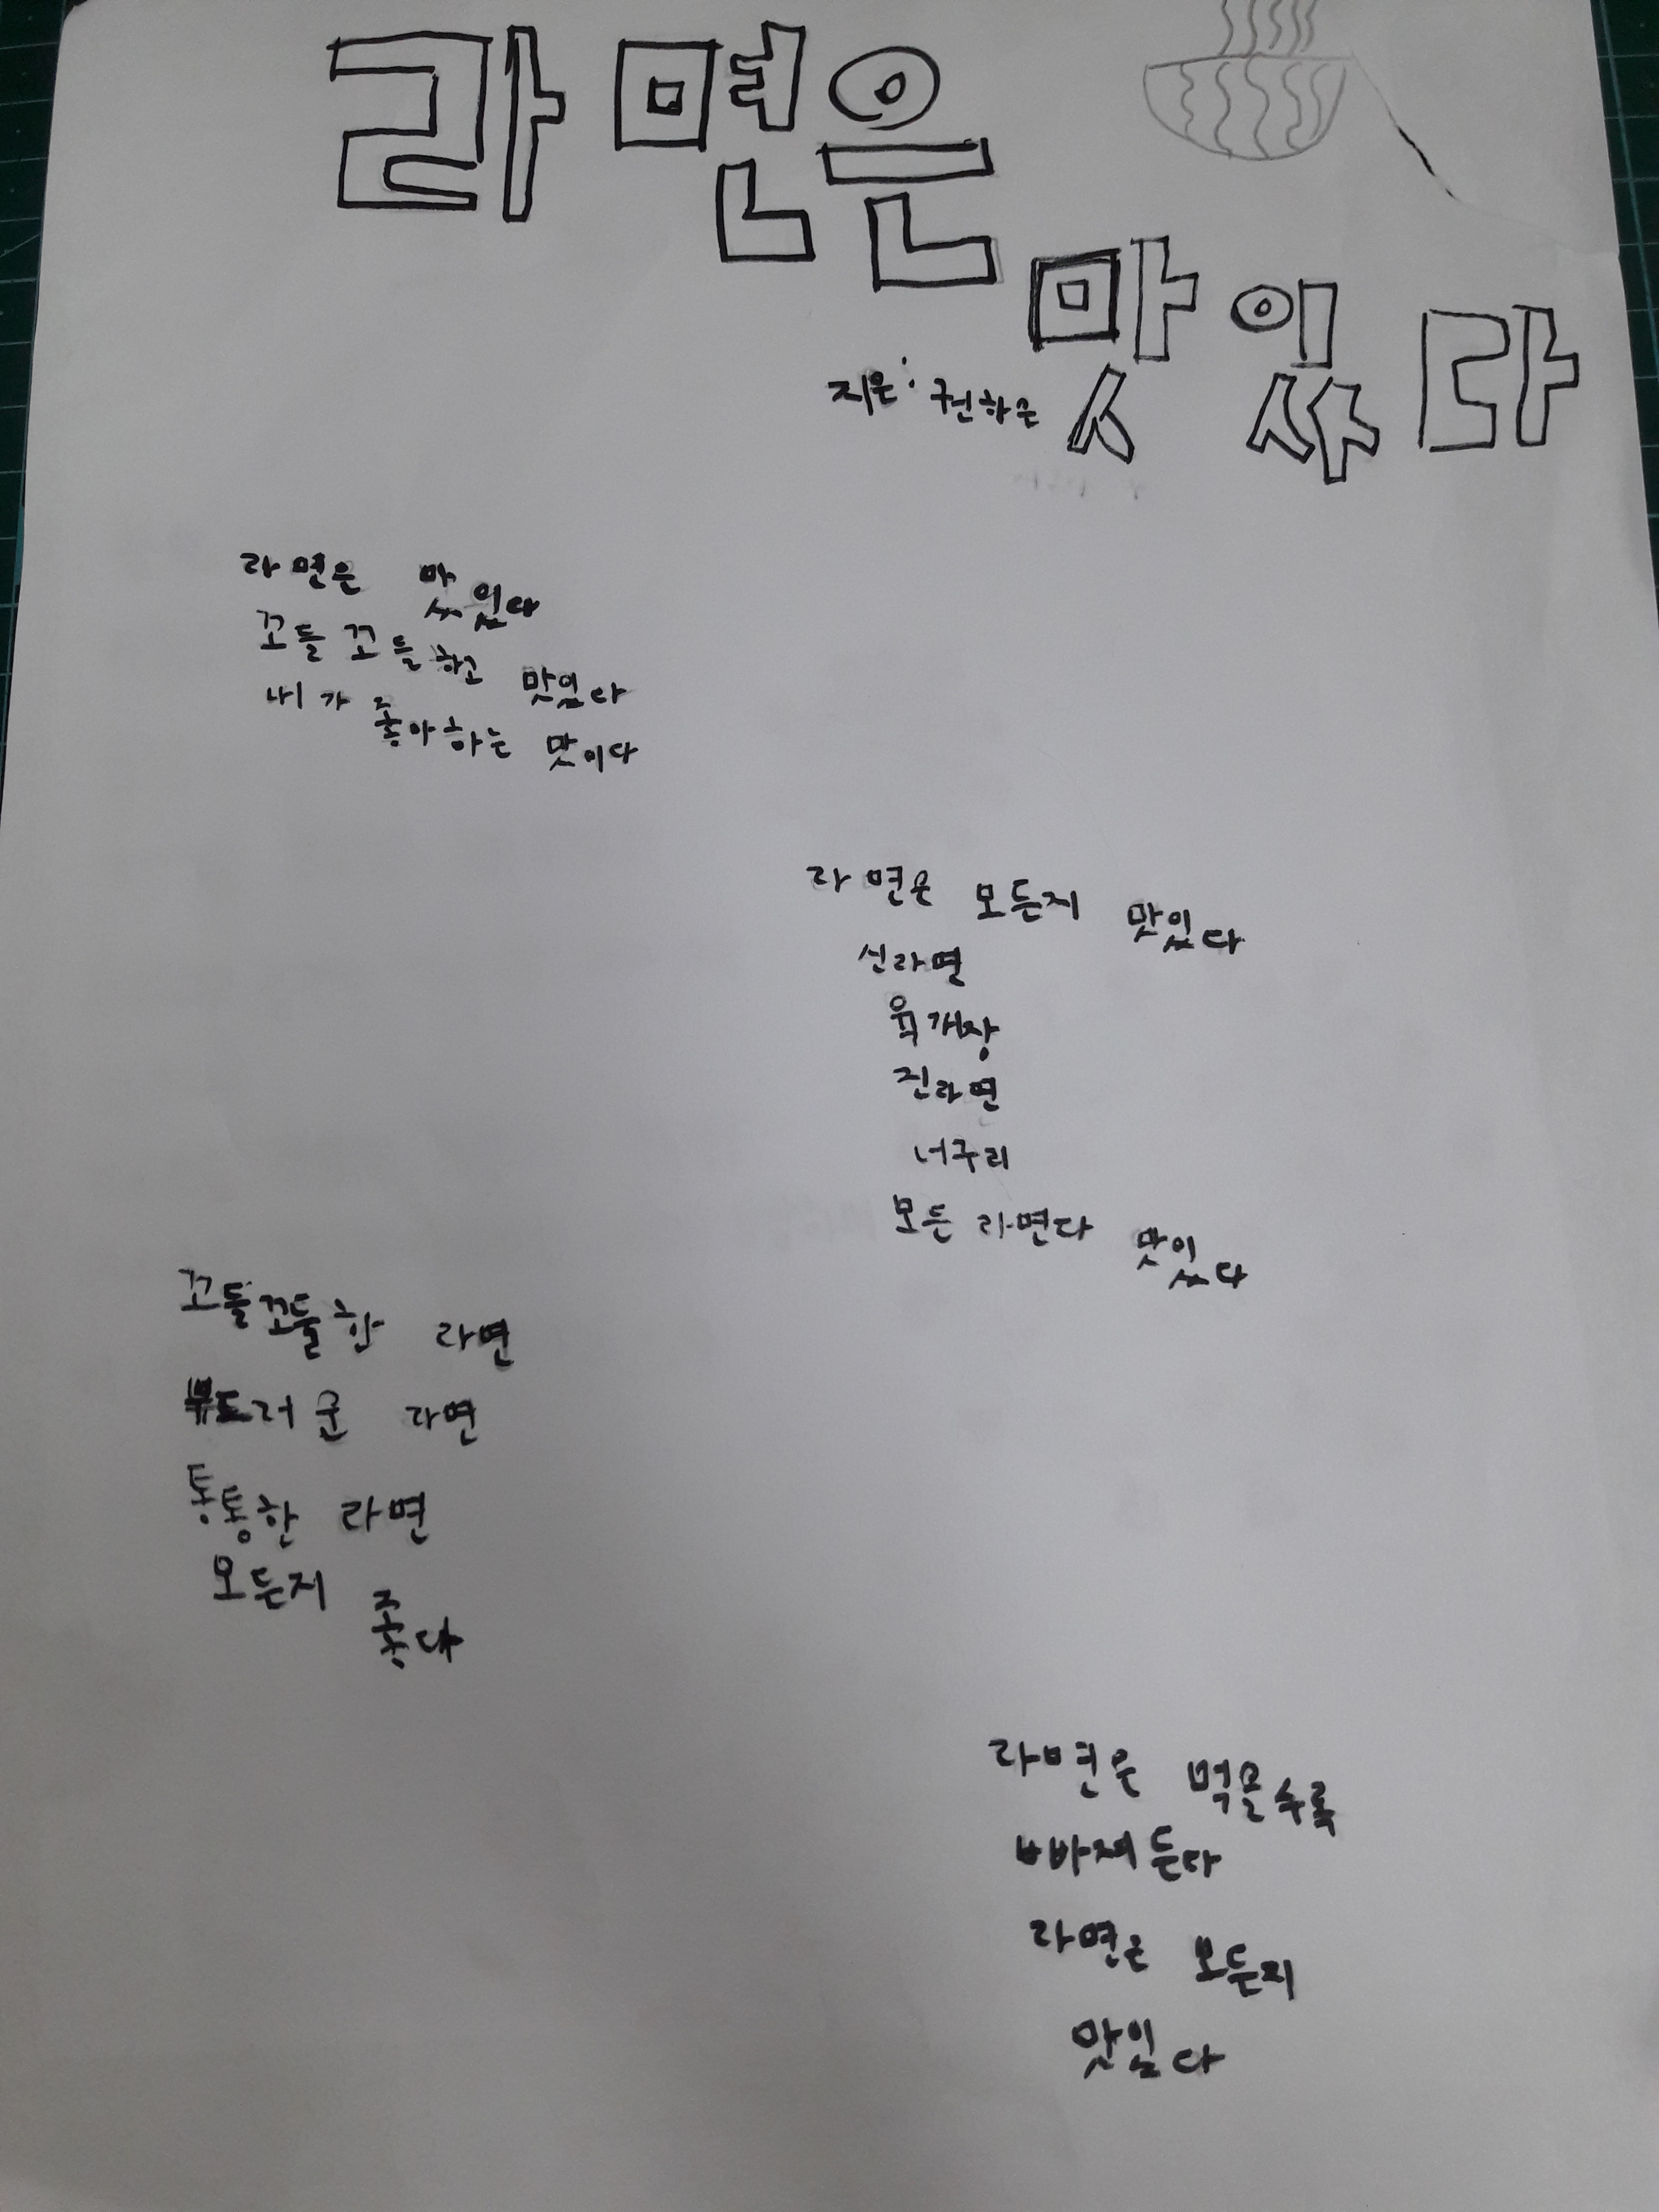 라면은
맛있다
지은: 권하은
라면은 맛있다
꼬들꼬들하고 맛있다
내가 좋아하는 맛이다
라면은 모든지 맛있다
신라면
육개장
진라면
너구리
모든 라면다 맛있다
꼬들꼬들한 라면
부드러운 라면
통통한 라면
모든지 좋다
라면은 먹을수록
빠져든다
라면은 모든지
맛있다